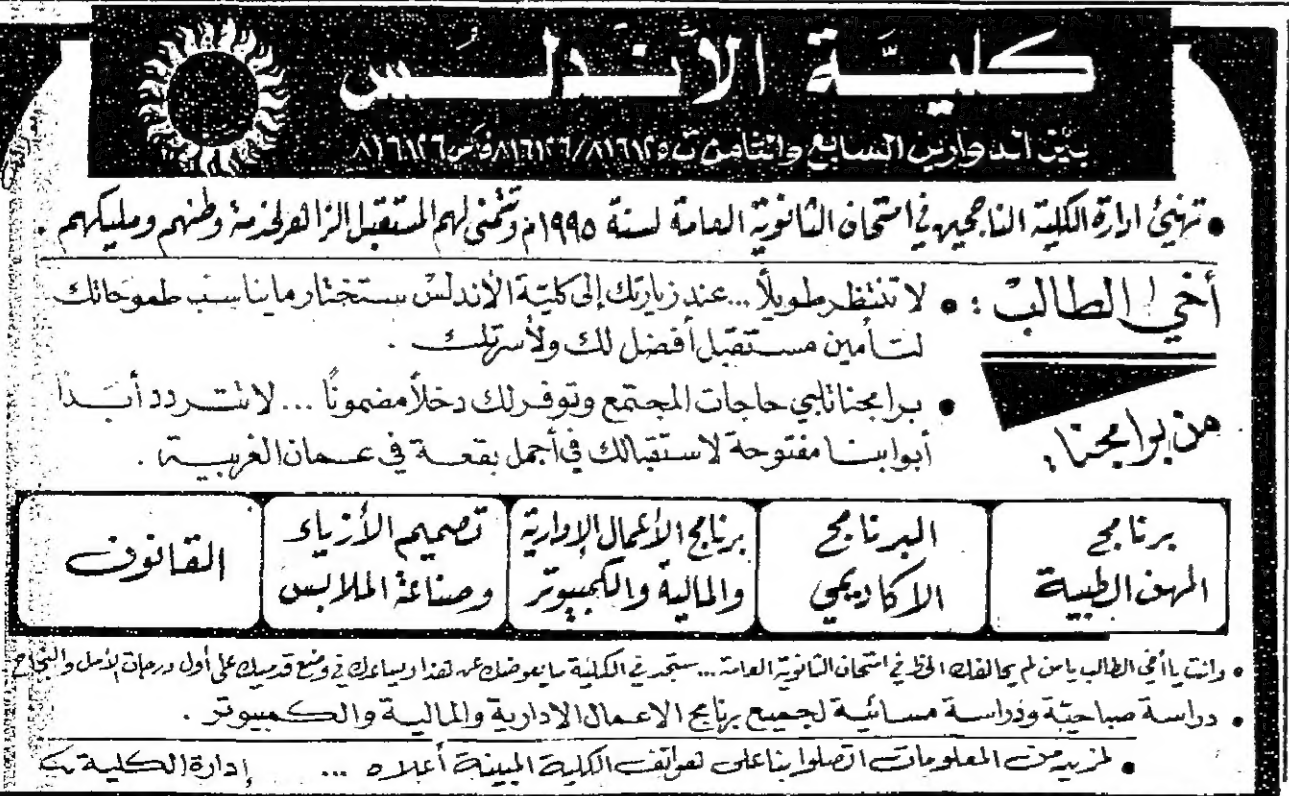 كليَّة الأندلس
بين الدوارين السابع والثامن ت ٨١٦١٢٥/٨١٦١٢٦ فاكس ٨١٦١٢٦
• تهنئ ادارة الكلية الناجحين في امتحان الثانوية العامة لسنة ١٩٩٥م وتتمنى لهم المستقبل الزاهر لخدمة وطنهم ومليكهم .
أخي الطالب :
• لا تنتظر طويلاً ... عند زيارتك إلى كلية الأندلس ستختار ما يناسب طموحاتك
لتأمين مستقبل أفضل لك ولأسرتك .
من برامجنا :
• برامجنا تلبي حاجات المجتمع وتوفر لك دخلاً مضموناً ... لا تتردد أبداً
أبوابنا مفتوحة لاستقبالك في أجمل بقعة في عمان الغربية .
برنامج
المهن الطبية
البرنامج
الاكاديمي
برنامج الأعمال الإدارية
والمالية والكمبيوتر
تصميم الأزياء
وصناعة الملابس
القانون
• وانت يا أخي الطالب يا من لم يحالفك الحظ في امتحان الثانوية العامة ... ستجد في الكلية ما يعوضك عن هذا ويساعدك في وضع قدميك على أول درجات الأمل والنجاح
• دراسة صباحية ودراسة مسائية لجميع برنامج الاعمال الادارية والمالية والكمبيوتر .
• لمزيد من المعلومات اتصلوا بنا على هواتف الكلية المبينة أعلاه ... إدارة الكلية